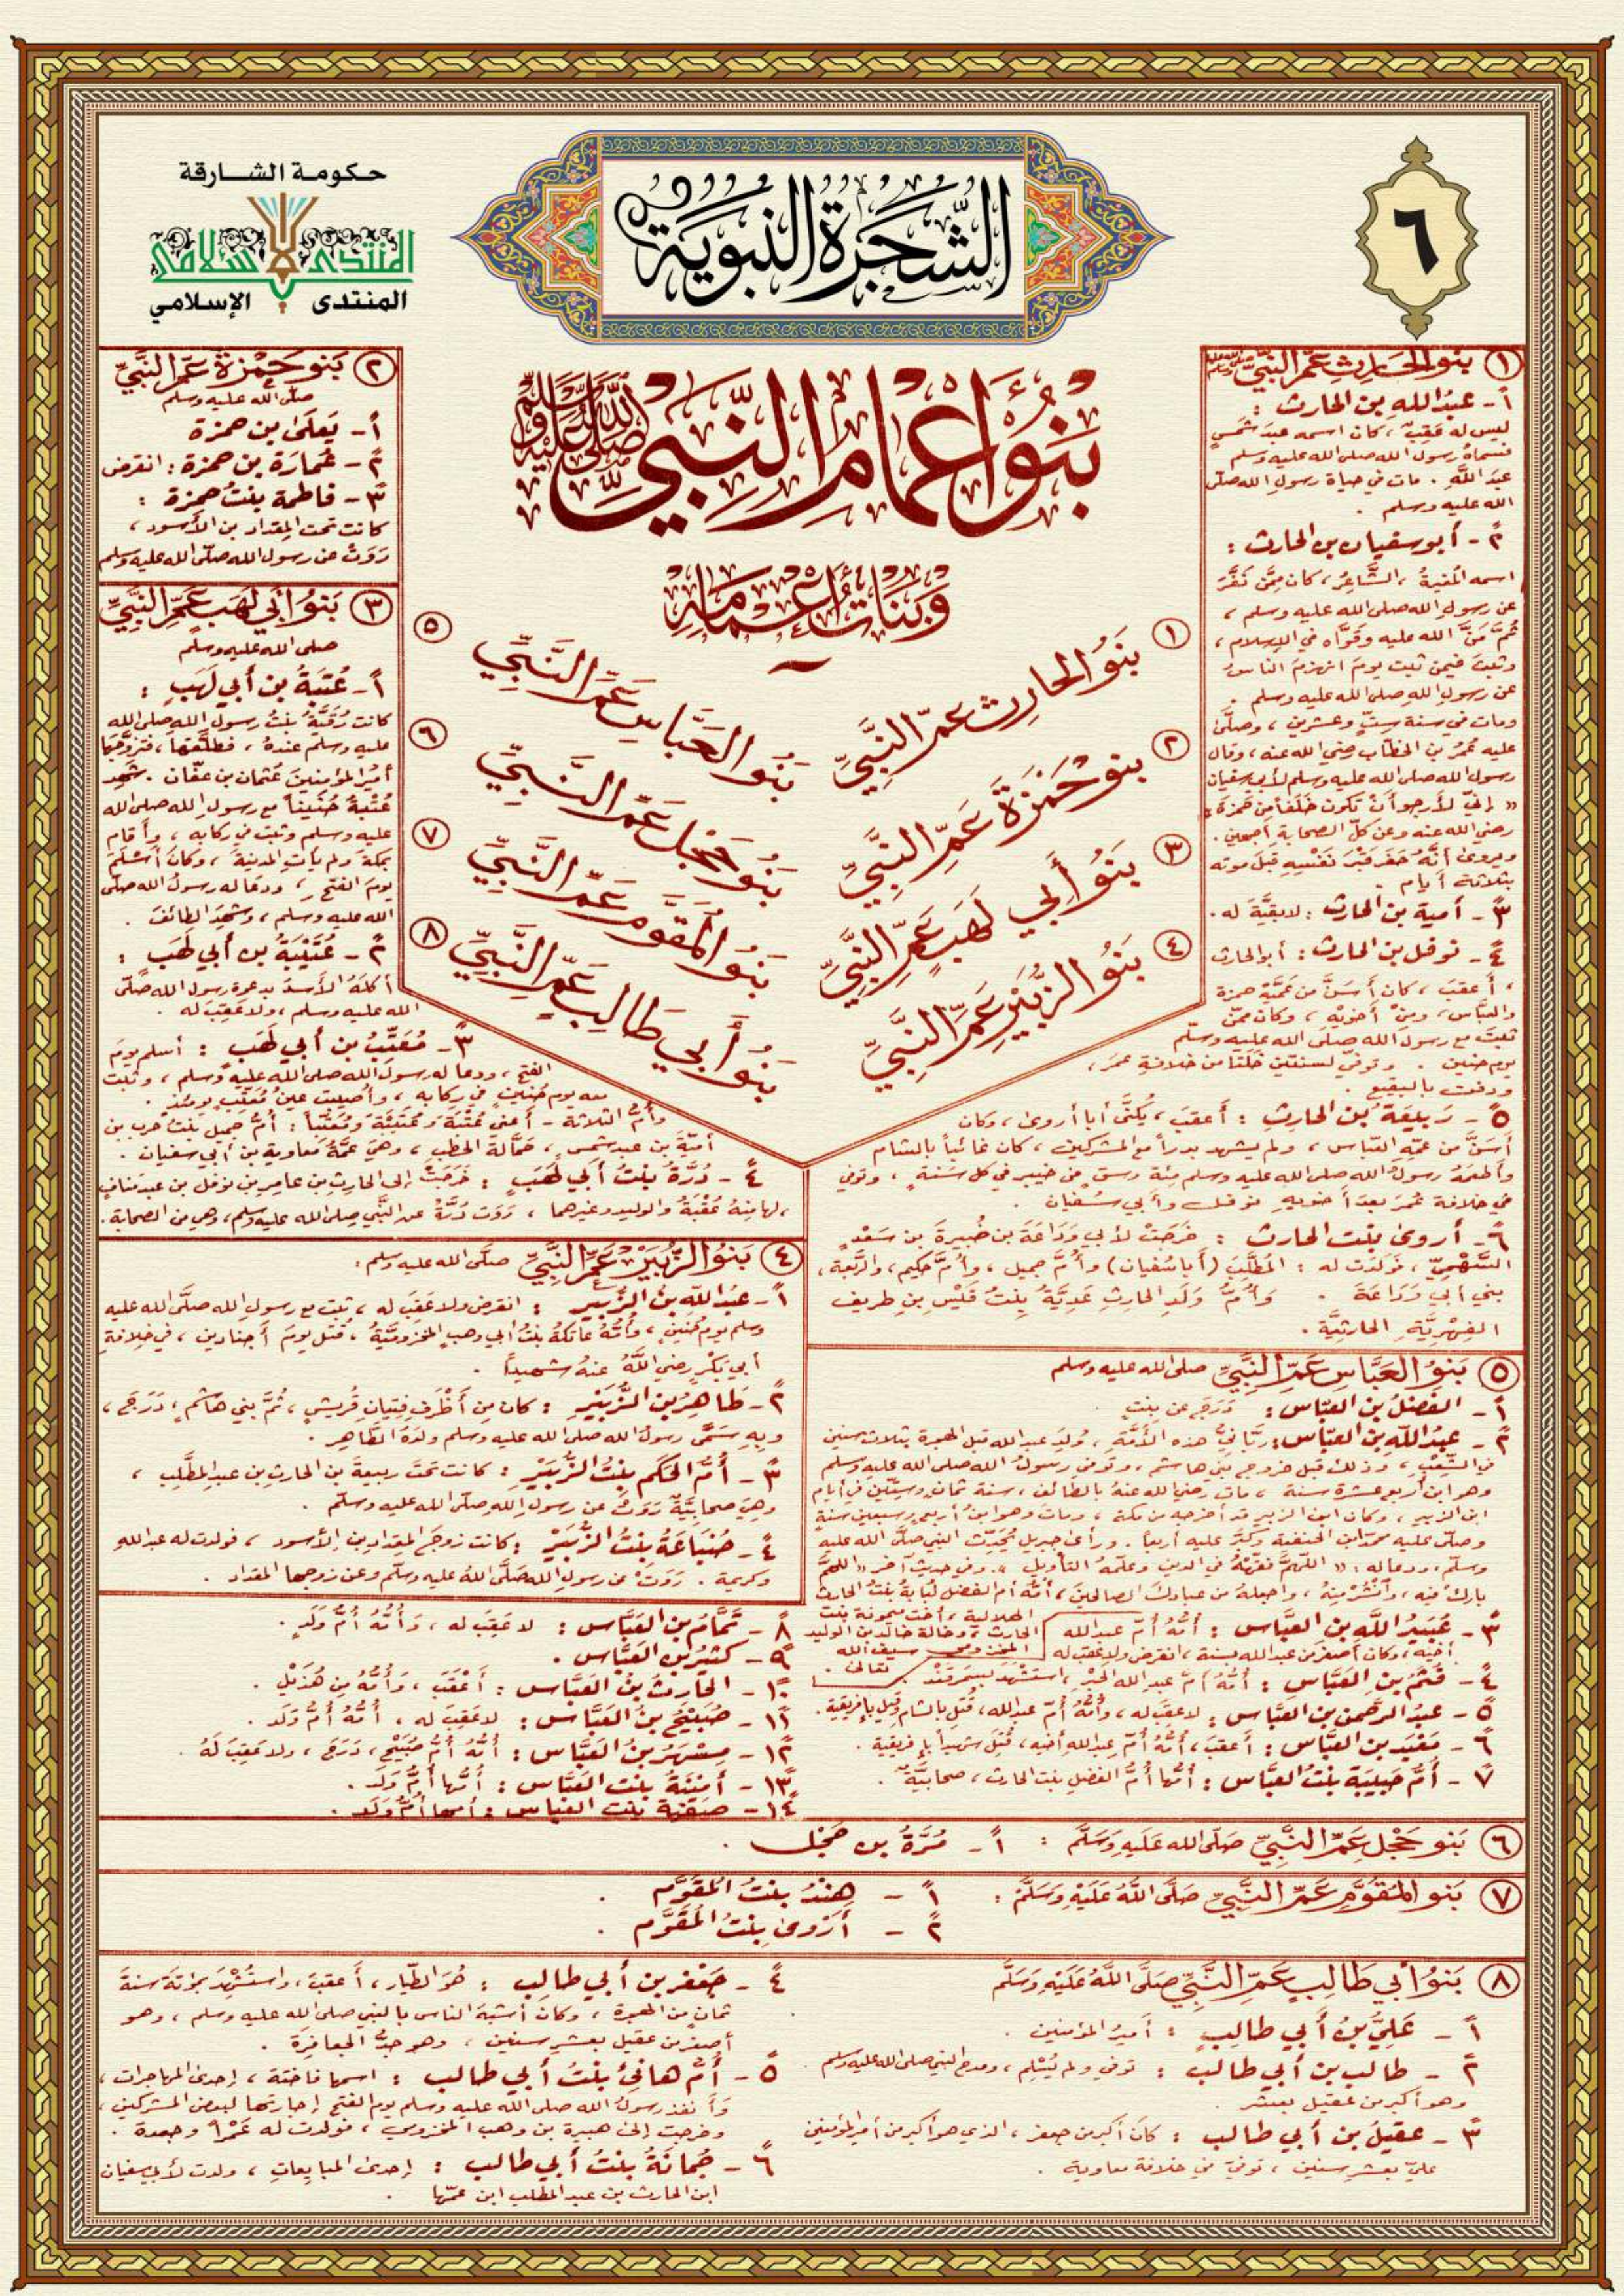 حكومة الشارقة
المنتدى الإسلامي
الشجرة النبوية
٦
بنو أعمام النبي صلى الله عليه وسلم
وبنات أعمامه
١ بنو الحارث عم النبي
٢ بنو حمزة عم النبي
٣ بنو أبي لهب عم النبي
٤ بنو الزبير عم النبي
٥ بنو العباس عم النبي
٦ بنو حجل عم النبي
٧ بنو المقوم عم النبي
٨ بنو أبي طالب عم النبي
١ بنو الحارث عم النبي صلى الله عليه وسلم
١ - عبد الله بن الحارث :
ليس له عقب ، كان اسمه عبد شمس
فسماه رسول الله صلى الله عليه وسلم
عبد الله . مات في حياة رسول الله صلى
الله عليه وسلم .
٢ - أبو سفيان بن الحارث :
اسمه المغيرة ، الشاعر ، كان ممن نفر
عن رسول الله صلى الله عليه وسلم ،
ثم من الله عليه وقواه في الإسلام ،
وثبت فيمن ثبت يوم انهزم الناس
عن رسول الله صلى الله عليه وسلم .
ومات في سنة ست وعشرين ، وصلى
عليه عمر بن الخطاب رضي الله عنه ، وقال
رسول الله صلى الله عليه وسلم لأبي سفيان
« إني لأرجو أن تكون خلفا من حمزة »
رضي الله عنه وعن كل الصحابة أجمعين .
ويروى أنه حفر قبر نفسه قبل موته
بثلاثة أيام .
٣ - أمية بن الحارث : لا بقية له .
٤ - نوفل بن الحارث : أبو الحارث
، أعقب ، كان أسن من عميه حمزة
والعباس ، ومن أخويه ، وكان ممن
ثبت مع رسول الله صلى الله عليه وسلم
يوم حنين . وتوفي لسنتين خلتا من خلافة عمر ،
ودفن بالبقيع .
٥ - ربيعة بن الحارث : أعقب ، يكنى أبا أروى ، وكان
أسن من عمه العباس ، ولم يشهد بدرا مع المشركين ، كان غائبا بالشام
وأطعمه رسول الله صلى الله عليه وسلم مئة وسق من خيبر في كل سنة ، وتوفي
في خلافة عمر بعد أخويه نوفل وأبي سفيان .
٦ - أروى بنت الحارث : خرجت لأبي وداعة بن ضبيرة بن سعد
السهمي ، فولدت له : المطلب (أبا سفيان) وأم جميل ، وأم حكيم ، والربعة ،
بني أبي وداعة . وأم ولد الحارث عدية بنت قيس بن طريف
الفهرية الحارثية .
٢ بنو حمزة عم النبي
صلى الله عليه وسلم
١ - يعلى بن حمزة
٢ - عمارة بن حمزة : انقرض
٣ - فاطمة بنت حمزة :
كانت تحت المقداد بن الأسود ،
روت عن رسول الله صلى الله عليه وسلم
٣ بنو أبي لهب عم النبي
صلى الله عليه وسلم
١ - عتبة بن أبي لهب :
كانت رقية بنت رسول الله صلى الله
عليه وسلم عنده ، فطلقها ، فتزوجها
أمير المؤمنين عثمان بن عفان . شهد
عتبة حنينا مع رسول الله صلى الله
عليه وسلم وثبت في ركابه ، وأقام
بمكة ولم يأت المدينة ، وكان أسلم
يوم الفتح ، ودعا له رسول الله صلى
الله عليه وسلم ، وشهد الطائف .
٢ - عتيبة بن أبي لهب :
أكله الأسد بدعوة رسول الله صلى
الله عليه وسلم ، ولا عقب له .
٣ - معتب بن أبي لهب : أسلم يوم
الفتح ، ودعا له رسول الله صلى الله عليه وسلم ، وثبت
معه يوم حنين في ركابه ، وأصيبت عين معتب يومئذ .
وأم الثلاثة - أعني عتبة وعتيبة ومعتبا : أم جميل بنت حرب بن
أمية بن عبد شمس ، حمالة الحطب ، وهي عمة معاوية بن أبي سفيان .
٤ - درة بنت أبي لهب : خرجت إلى الحارث بن عامر بن نوفل بن عبد مناف
، لها منه عقبة والوليد وغيرهما ، روت درة عن النبي صلى الله عليه وسلم ، وهي من الصحابة .
٤ بنو الزبير عم النبي صلى الله عليه وسلم :
١ - عبد الله بن الزبير : انقرض ولا عقب له ، ثبت مع رسول الله صلى الله عليه
وسلم يوم حنين ، وأمه عاتكة بنت أبي وهب المخزومية ، قتل يوم أجنادين ، في خلافة
أبي بكر رضي الله عنه شهيدا .
٢ - طاهر بن الزبير : كان من أظرف فتيان قريش ، ثم بني هاشم ، درج ،
وبه سمى رسول الله صلى الله عليه وسلم ولده الطاهر .
٣ - أم الحكم بنت الزبير : كانت تحت ربيعة بن الحارث بن عبد المطلب ،
وهي صحابية روت عن رسول الله صلى الله عليه وسلم .
٤ - ضباعة بنت الزبير : كانت زوج المقداد بن الأسود ، فولدت له عبد الله
وكريمة . روت عن رسول الله صلى الله عليه وسلم وعن زوجها المقداد .
٥ بنو العباس عم النبي صلى الله عليه وسلم
١ - الفضل بن العباس : درج عن بنت .
٢ - عبد الله بن العباس : رباني هذه الأمة ، ولد عبد الله قبل الهجرة بثلاث سنين
في الشعب ، وذلك قبل خروج بني هاشم ، وتوفي رسول الله صلى الله عليه وسلم
وهو ابن أربع عشرة سنة ، مات رضي الله عنه بالطائف ، سنة ثمان وستين في أيام
ابن الزبير ، وكان ابن الزبير قد أخرجه من مكة ، ومات وهو ابن أربع وسبعين سنة
وصلى عليه محمد ابن الحنفية وكبر عليه أربعا . ورأى جبريل يحدث النبي صلى الله عليه
وسلم ، ودعا له : « اللهم فقهه في الدين وعلمه التأويل » . وفي حديث آخر « اللهم
بارك فيه ، وانشر منه ، واجعله من عبادك الصالحين » ، أمه أم الفضل لبابة بنت الحارث
الهلالية ، أخت ميمونة بنت
الحارث ، وخالة خالد بن الوليد
المخزومي سيف الله
تعالى .
٣ - عبيد الله بن العباس : أمه أم عبد الله
أخيه ، وكان أصغر من عبد الله بسنة ، انقرض ولا عقب له
٤ - قثم بن العباس : أمه أم عبد الله الحبر ، استشهد بسمرقند .
٥ - عبد الرحمن بن العباس : لا عقب له ، وأمه أم عبد الله ، قتل بالشام وقيل بإفريقية .
٦ - معبد بن العباس : أعقب ، أمه أم عبد الله أخيه ، قتل شهيدا بإفريقية .
٧ - أم حبيبة بنت العباس : أمها أم الفضل بنت الحارث ، صحابية .
٨ - تمام بن العباس : لا عقب له ، وأمه أم ولد .
٩ - كثير بن العباس .
١٠ - الحارث بن العباس : أعقب ، وأمه من هذيل .
١١ - صبيح بن العباس : لا عقب له ، أمه أم ولد .
١٢ - مسهر بن العباس : أمه أم صبيح ، درج ، ولا عقب له .
١٣ - أمنة بنت العباس : أمها أم ولد .
١٤ - صفية بنت العباس : أمها أم ولد .
٦ بنو حجل عم النبي صلى الله عليه وسلم : ١ - مرة بن حجل .
٧ بنو المقوم عم النبي صلى الله عليه وسلم : ١ - هند بنت المقوم .
٢ - أروى بنت المقوم .
٨ بنو أبي طالب عم النبي صلى الله عليه وسلم
١ - علي بن أبي طالب : أمير المؤمنين .
٢ - طالب بن أبي طالب : توفي ولم يسلم ، ومدح النبي صلى الله عليه وسلم .
وهو أكبر من عقيل بعشر .
٣ - عقيل بن أبي طالب : كان أكبر من جعفر ، الذي هو أكبر من أمير المؤمنين
علي بعشر سنين ، توفي في خلافة معاوية .
٤ - جعفر بن أبي طالب : هو الطيار ، أعقب ، واستشهد بمؤتة سنة
ثمان من الهجرة ، وكان أشبه الناس بالنبي صلى الله عليه وسلم ، وهو
أصغر من عقيل بعشر سنين ، وهو جد الجعافرة .
٥ - أم هانئ بنت أبي طالب : اسمها فاختة ، إحدى المهاجرات ،
وأنفذ رسول الله صلى الله عليه وسلم يوم الفتح إجارتها لبعض المشركين ،
وخرجت إلى هبيرة بن وهب المخزومي ، فولدت له عمرا وجعدة .
٦ - جمانة بنت أبي طالب : إحدى المبايعات ، ولدت لأبي سفيان
ابن الحارث بن عبد المطلب ابن عمها .